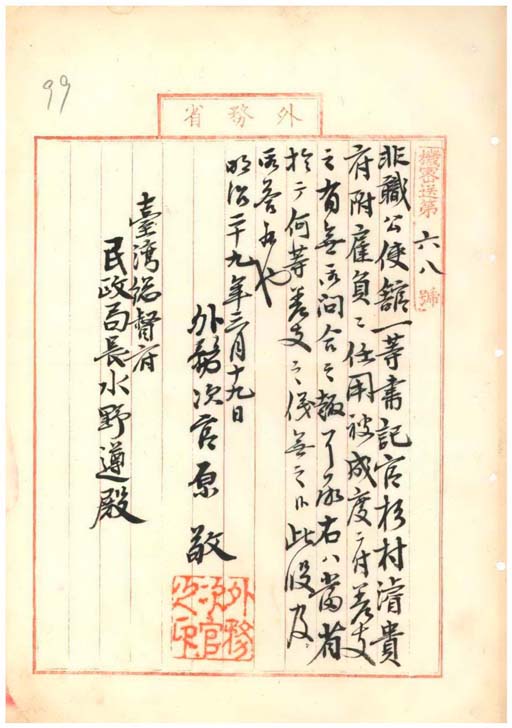 99
外務省
機密送第六八號
非職公使館一等書記官杉村濬貴
府附雇員ニ任用被成度ニ付差支
之有無御問合之趣了承右ハ當省
於テ何等差支之儀無之候此段及
御答候也
明治二十九年三月十九日
外務次官原敬
外務次官之印
臺灣總督府
民政局長水野遵殿